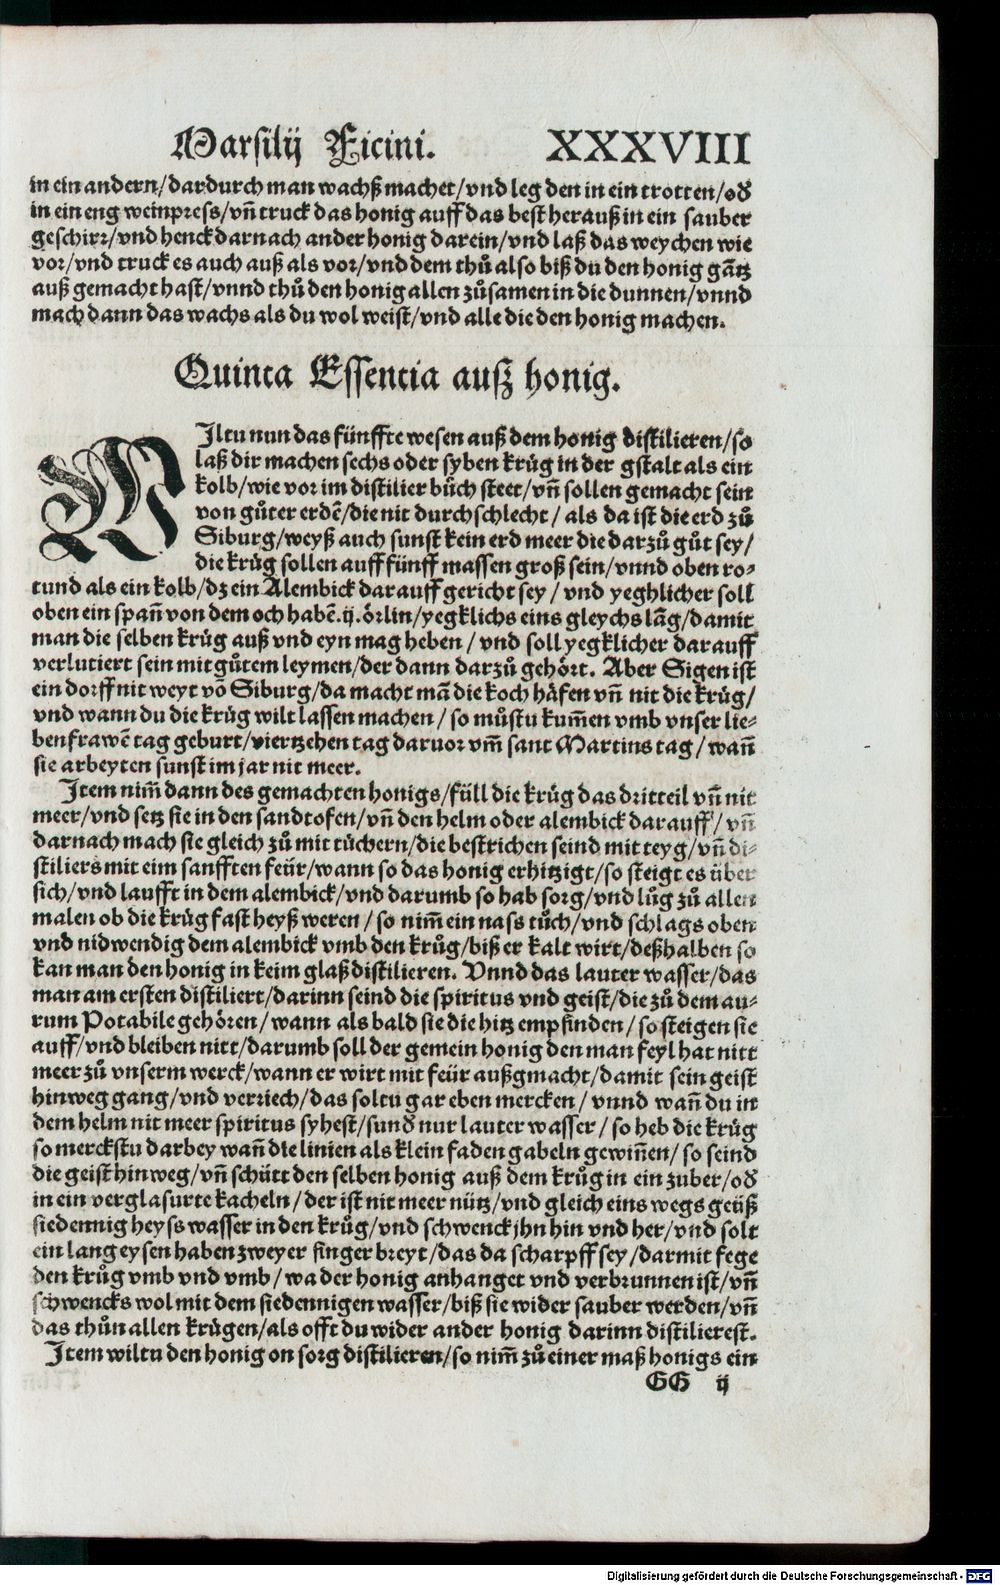 Marsilij Ficini. XXXVIII
in ein andern/dardurch man wachß machet/vnd leg den in ein trotten/od
in ein eng weinpress/vñ truck das honig auff das best herauß in ein sauber
geschirr/vnd henck darnach ander honig darein/vnd laß das weychen wie
vor/vnd truck es auch auß als vor/vnd dem thů also biß du den honig gātz
auß gemacht hast/vnnd thů den honig allen zůsamen in die dunnen/vnnd
mach dann das wachs als du wol weist/vnd alle die den honig machen.
Quinta Essentia auß honig.
WIltu nun das fünffte wesen auß dem honig distilieren/so
laß dir machen sechs oder syben krüg in der gstalt als ein
kolb/wie vor im distilier bůch steet/vñ sollen gemacht sein
von gůter erdē/die nit durchschlecht/als da ist die erd zů
Siburg/weyß auch sunst kein erd meer die darzů gůt sey/
die krüg sollen auff fünff massen groß sein/vnnd oben ro-
tund als ein kolb/dz ein Alembick darauff gericht sey/vnd yeghlicher soll
oben ein spañ von dem och habē.ij.örlin/yegklichs eins gleychs lāg/damit
man die selben krüg auß vnd eyn mag heben/vnd soll yegklicher darauff
verlutiert sein mit gůtem leymen/der dann darzů gehört. Aber Sigen ist
ein dorff nit weyt vō Siburg/da macht mā die koch häfen vñ nit die krüg/
vnd wann du die krüg wilt lassen machen/so můstu kum̃en vmb vnser lie-
ben frawē tag geburt/viertzehen tag daruor vm̃ sant Martins tag/wañ
sie arbeyten sunst im jar nit meer.
Item nim̃ dann des gemachten honigs/füll die krüg das dritteil vñ nit
meer/vnd setz sie in den sandtofen/vñ den helm oder alembick darauff/vñ
darnach mach sie gleich zů mit tüchern/die bestrichen seind mit teyg/vñ di-
stiliers mit eim sanfften feür/wann so das honig erhitzigt/so steigt es über
sich/vnd laufft in dem alembick/vnd darumb so hab sorg/vnd lůg zů allen
malen ob die krüg fast heyß weren/so nim̃ ein nass tůch/vnd schlags oben
vnd nidwendig dem alembick vmb den krůg/biß er kalt wirt/deßhalben so
kan man den honig in keim glaß distilieren. Vnnd das lauter wasser/das
man am ersten distiliert/darinn seind die spiritus vnd geist/die zů dem au-
rum Potabile gehören/wann als bald sie die hitz empfinden/so steigen sie
auff/vnd bleiben nitt/darumb soll der gemein honig den man feyl hat nitt
meer zů vnserm werck/wann er wirt mit feür außgmacht/damit sein geist
hinweg gang/vnd verriech/das soltu gar eben mercken/vnnd wañ du in
dem helm nit meer spiritus syhest/sund nur lauter wasser/so heb die krüg
so merckstu darbey wañ die linien als klein faden gabeln gewiñen/so seind
die geist hinweg/vñ schütt den selben honig auß dem krůg in ein zuber/od
in ein verglasurte kacheln/der ist nit meer nütz/vnd gleich eins wegs geüß
siedennig heyss wasser in den krůg/vnd schwenck jhn hin vnd her/vnd solt
ein lang eysen haben zweyer finger breyt/das da scharpff sey/darmit fege
den krůg vmb vnd vmb/wa der honig anhanget vnd verbrunnen ist/vñ
schwencks wol mit dem siedennigen wasser/biß sie wider sauber werden/vñ
das thůn allen krügen/als offt du wider ander honig darinn distilierest.
Item wiltu den honig on sorg distilieren/so nim̃ zů einer maß honigs ein
GG ij
Digitalisierung gefördert durch die Deutsche Forschungsgemeinschaft - DFG